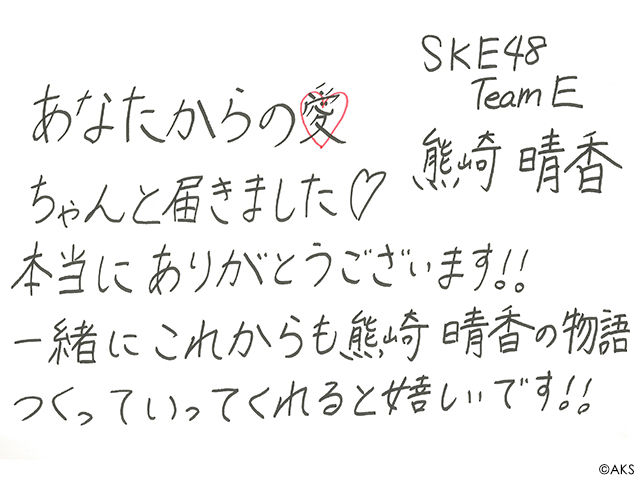 SKE48
Team E
熊崎 晴香
あなたからの愛
ちゃんと届きました♡
本当にありがとうございます!!
一緒にこれからも熊崎 晴香の物語
つくっていってくれると嬉しいです!!
©AKS